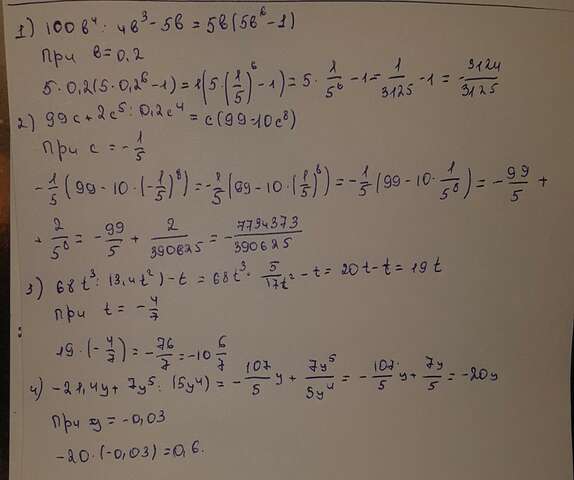 1) 100в⁴ : 4в³ - 5в = 5в(5в⁶ - 1)
При в = 0,2
5 · 0,2(5 · 0,2⁶ - 1) = 1(5 · (1/5)⁶ - 1) = 5 · 1/5⁶ - 1 = 1/3125 - 1 = -3124/3125
2) 99c + 2c⁵ : 0,2c⁴ = c(99 - 10c⁸)
При c = -1/5
-1/5(99 - 10 · (-1/5)⁸) = -1/5(99 - 10 · (1/5)⁸) = -1/5(99 - 10 · 1/5⁸) = -99/5 +
+ 2/5⁸ = -99/5 + 2/390625 = -7734373/390625
3) 68t³ : (3,4t²) - t = 68t³ · 5/17t² - t = 20t - t = 19t
При t = -4/7
19 · (-4/7) = -76/7 = -10 6/7
4) -21,4y + 7y⁵ : (5y⁴) = -107/5 y + 7y⁵/5y⁴ = -107/5 y + 7y/5 = -20y
При y = -0,03
-20 · (-0,03) = 0,6.